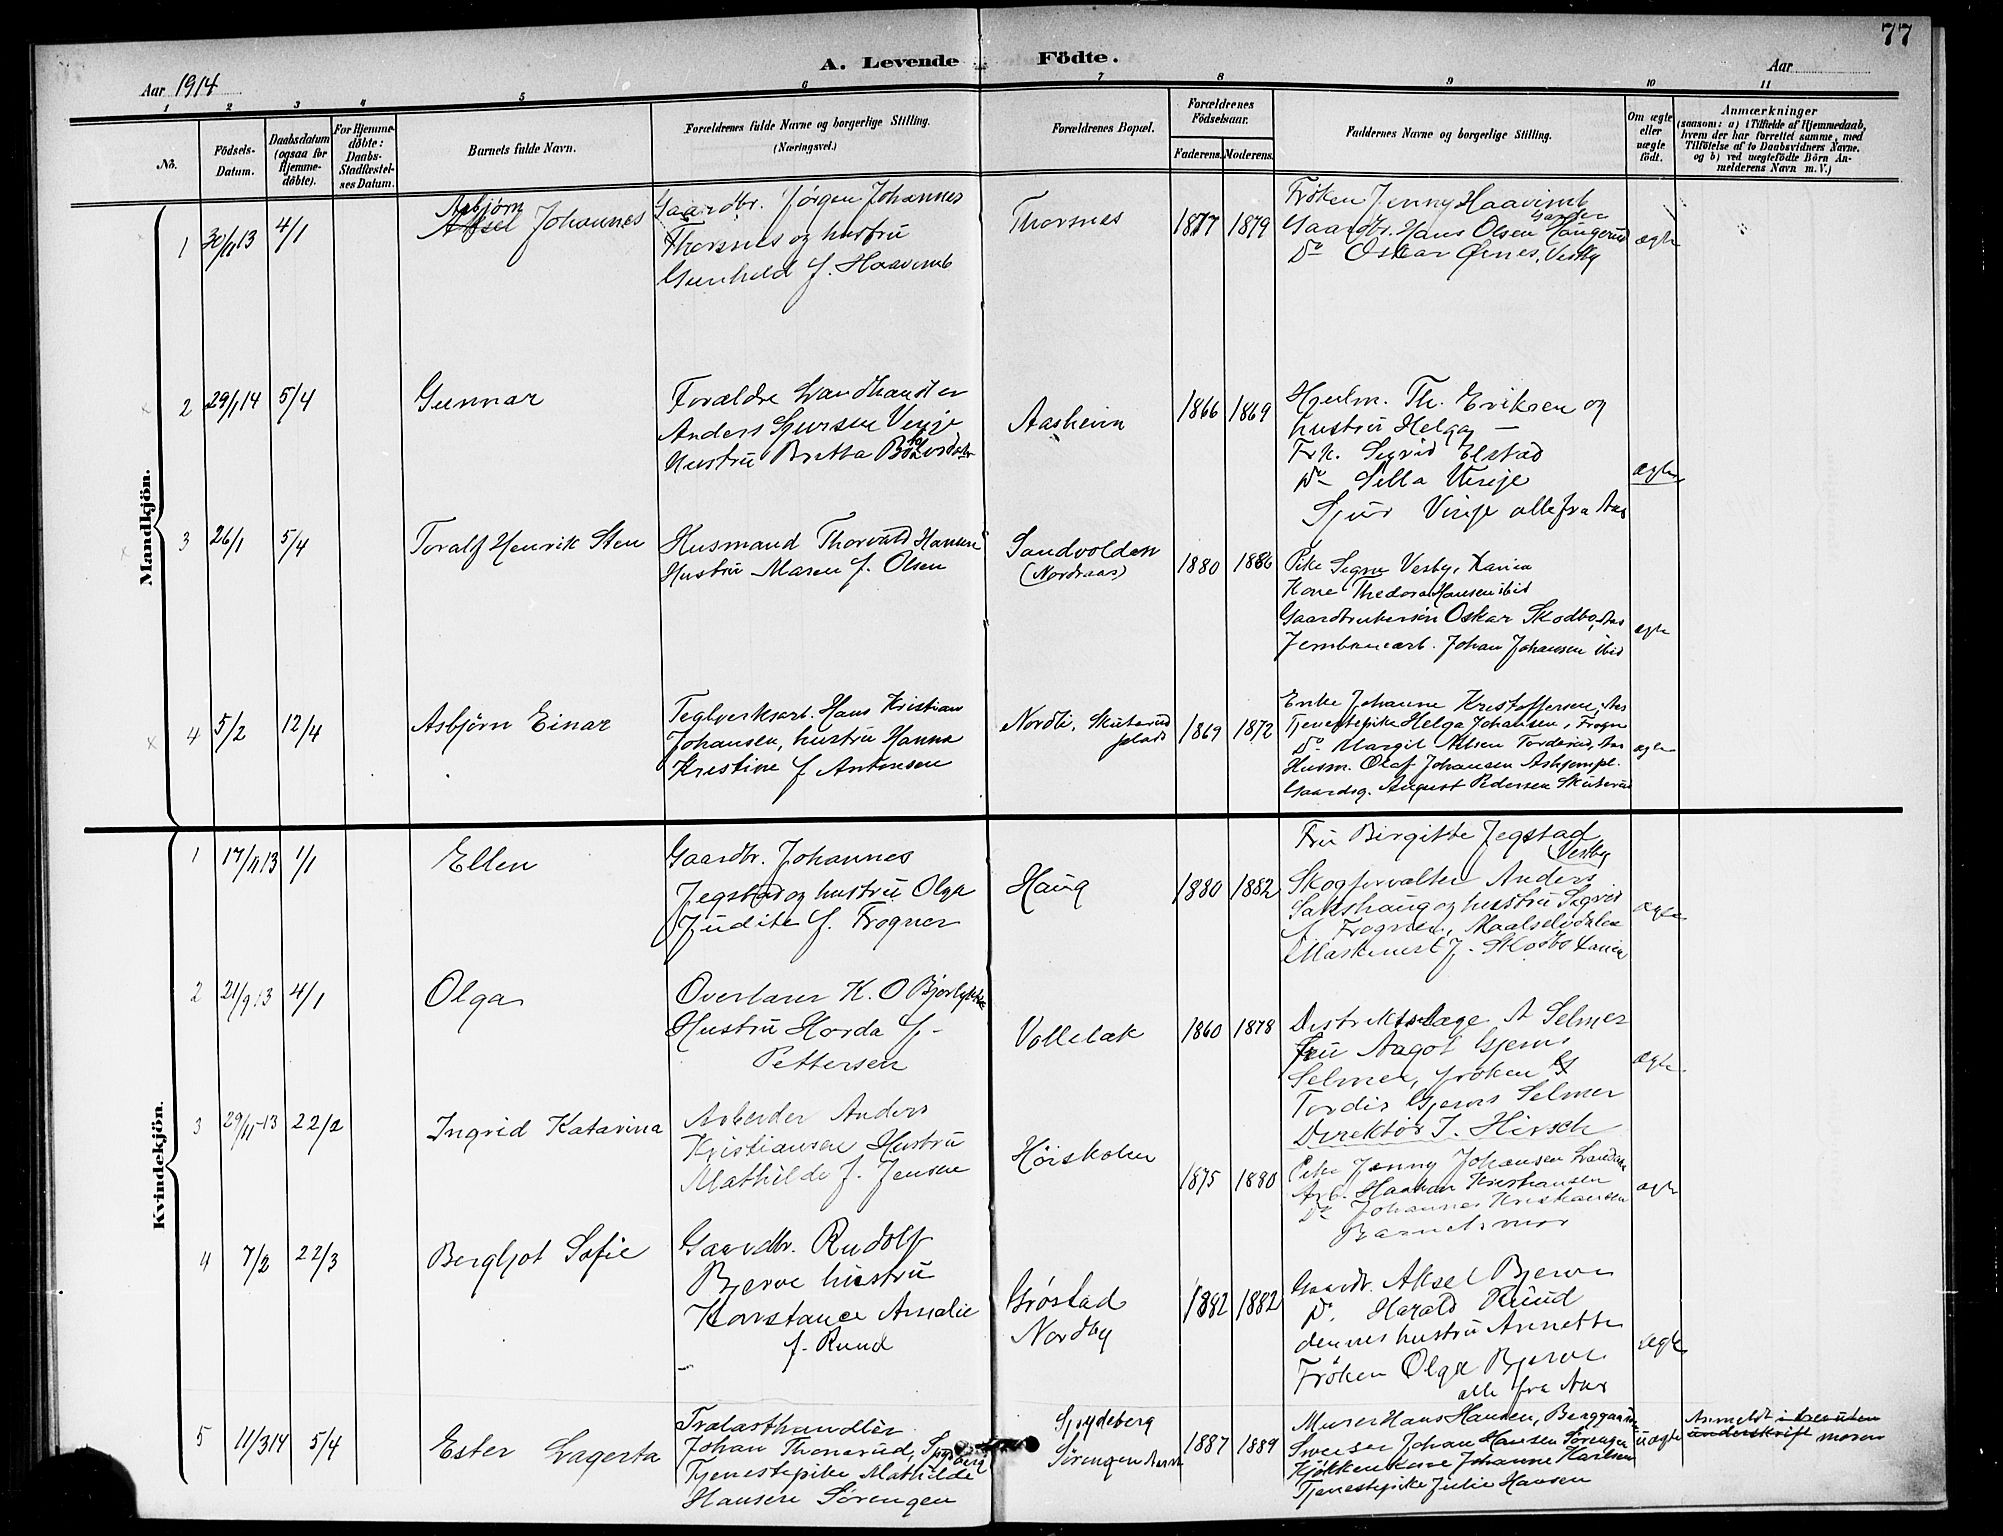 77
A. Levende Födte.
Aar 1914
Aar
1 2 3 4 5 6 7 8 9 10 11
Nö.
Födsels-Datum.
Daabsdatum (ogsaa for Hjemme-döbte).
For Hjemme-döbte: Daabs-Stadfæstel-ses Datum.
Barnets fulde Navn.
Forældrenes fulde Navne og borgerlige Stilling.
(Næringsvei.)
Forældrenes Bopæl.
Forældrenes Födselsaar.
Faderens. Moderens.
Faddernes Navne og borgerlige Stilling.
Om ægte eller uægte födt.
Anmærkninger
(saasom: a) i Tilfælde af Hjemmedaab,
hvem der har forrettet samme, med
Tilföielse af to Daabsvidners Navne.
og b) ved uægtefödte Börn An-
melderens Navn m. V.)
Mandkjön.
1 30/11 13 4/1
Asbjørn
Aksel Johannes
Gaardbr. Jörgen Johannes
Thorsnes og hustru
Gunhild f. Haavimb
Thorsnes
1877 1879
Frøken Jenny Haavimb
Gaardbr. Hans Olsen Haugerud
Do Oskar Ørnes, Vestby
ægte
2 29/1 14 5/4
Gunnar
Forældre Landhandler
Anders Sjursen Verije
Hustru Britta
Aasheim
1866 1869
Hjulm. Th. Eriksen og
hustru Helga —
Frk. Sigrid Elstad
Do Silla Verije
Sjur Verije alle fra Aas
ægte
3 26/1 5/4
Toralf Henrik Sten
Husmand Thorvald Hansen
Hustru Maren f. Olsen
Sandvolden
(Nordraas)
1880 1886
Pike Signe Vestby,
Kone Thedora Hansen ibid
Gaardbrukersön Oskar Skodbo, Aas
Jernbanearb. Johan Johansen ibid
ægte
4 5/2 12/4
Asbjörn Einar
Teglverksarb. Hans Kristian
Johansen, hustru Hanna
Kristine f Antonsen
Nordli, Skuterud
plads
1869 1872
Enke Johanne Kristoffersen, Aas
Tjenestepike Helga Johansen, Frogn
Do Margit Nilsen Torderud, Aas
Husm. Olaf Johansen Askjempl.
Gaardsg. August Pedersen Skuterud
ægte
Kvindekjön.
1 17/11 13 1/1
Ellen
Gaardbr. Johannes
Jegstad og hustru Olga
Judite f. Frogner
Haug
1880 1882
Fru Birgitte Jegstad
Vestby
Skogforvalter Anders
Sakshaug og hustru Sigrid
f. Frogner, Maalselvdalen
Maskinist J. Skodbo
ægte
2 21/9 13 4/1
Olga
Overlærer K. O Bjørlykke
Hustru Horda f-
Pettersen
Vollebæk
1860 1878
Distriktslæge A Selmer
Fru Aagot Gjems
Selmer, fröken
Tordis Gjems Selmer
Direktör J. Hirsch
ægte
3 29/11-13 22/2
Ingrid Katarina
Arbeider Anders
Kristiansen Hustru
Mathilde f. Jensen
Höiskolen
1875 1880
Pike Jenny Johansen
Arb. Haakon Kristiansen
Do Johannes Kristiansen
Barnets mor
ægte
4 7/2 22/3
Bergljot Sofie
Gaardbr. Rudolf
Bjerve hustru
Konstance Amalie
f. Ruud
Gröstad
Nordby
1882 1882
Gaardbr. Aksel Bjerve
Do. Harald Ruud
dennes hustru Annette
Fröken Olga Bjerve
alle fra Aas
ægte
5 11/3 14 5/4
Ester Lagerta
Trælasthandler
Johan Thonerud, Spydeberg
Tjenestepike Mathilde
Hansen Sörengen
Spydeberg
Sörengen
1887 1889
Murer Hans Hansen,
Sveiser Johan Hansen Sörengen
Kjökkenkone Johanne Karlsen
Tjenestepike Julie Hansen
uægte
Anmeldt
underskrift moren